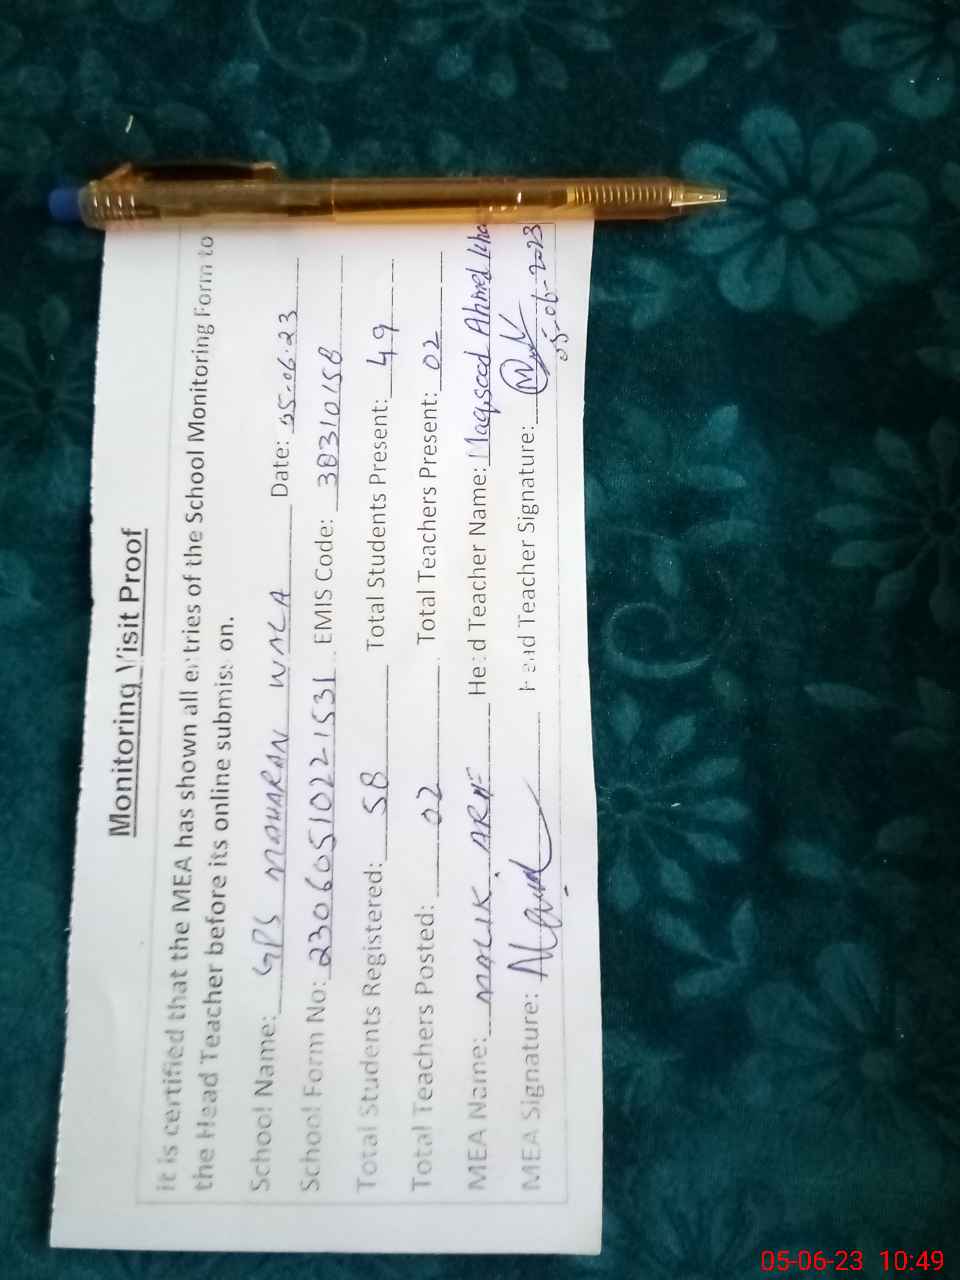 Monitoring Visit Proof
it is certified that the MEA has shown all entries of the School Monitoring Form to
the Head Teacher before its online submission.
School Name: GPS MOHARAN WALA Date: 05-06-23
School Form No: 23060510221531 EMIS Code: 38310158
Total Students Registered: 58 Total Students Present: 49
Total Teachers Posted: 02 Total Teachers Present: 02
MEA Name: MALIK ARIF Head Teacher Name: Maqsood Ahmed Kha
MEA Signature: Head Teacher Signature:
05-06-2023
05-06-23 10:49